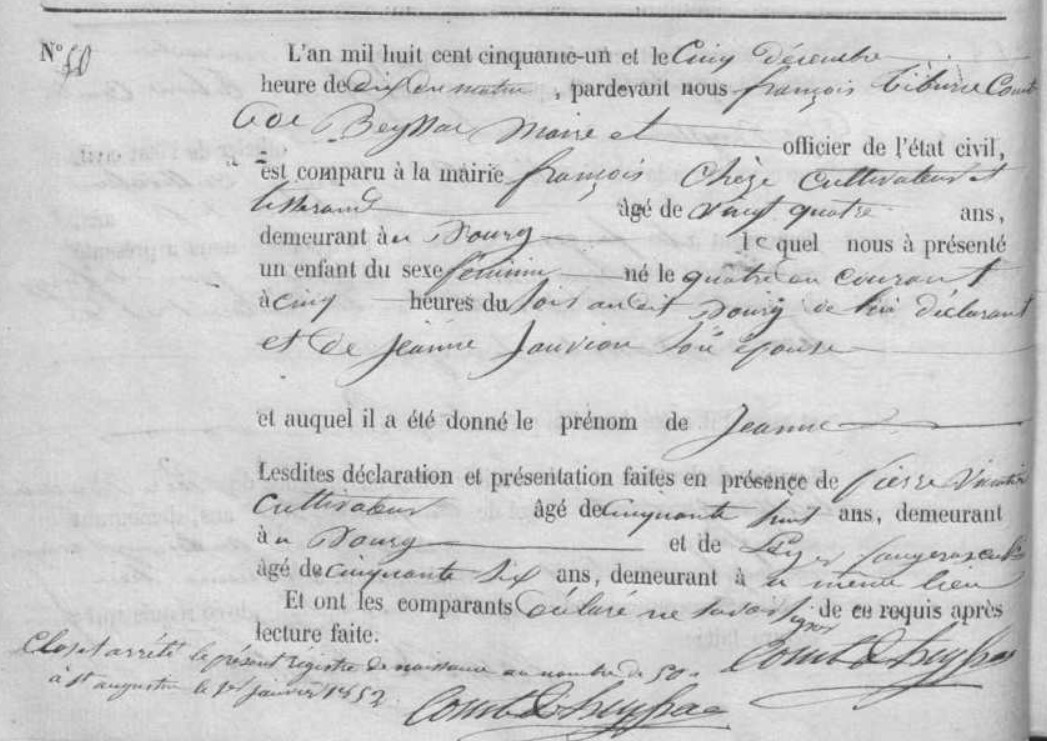 N° 50
L'an mil huit cent cinquante-un et le Cinq décembre
heure de dix du matin, pardevant nous françois tiburce Comte
de Beyssac Maire et officier de l'état civil,
est comparu à la mairie françois Chèze Cultivateur et
tisserand âgé de vingt quatre ans,
demeurant à ce Bourg lequel nous à présenté
un enfant du sexe féminin né le quatre du courant
à cinq heures du soir audit Bourg de lui déclarant
et de Jeanne Jauvion son épouse
et auquel il a été donné le prénom de Jeanne
Lesdites déclaration et présentation faites en présence de Pierre
Cultivateur âgé de cinquante huit ans, demeurant
à ce Bourg et de
âgé de cinquante six ans, demeurant à ce même lieu
Et ont les comparants déclaré ne savoir signer de ce requis après
lecture faite.
Clos et arrété le présent régistre de naissance au nombre de 50.
à St augustin le 1er janvier 1852
Comte de Beyssac
Comte de Beyssac